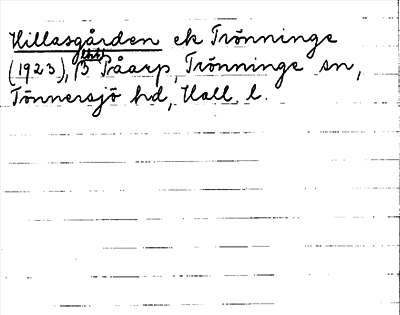 Hillasgården ek Trönninge
(1923), 3 Pråarp, Trönninge sn,
Tönnersjö hd, Hall. l.